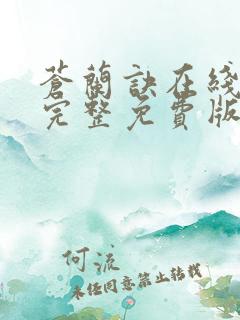 蒼蘭訣在线
完整免費版
何流
未经同意禁止转载